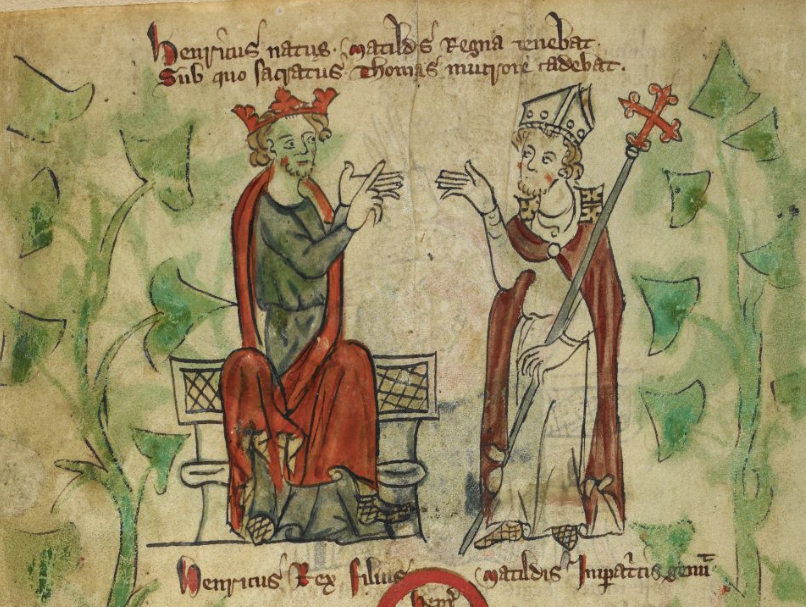 Henricus natus Matildis Regna tenebat.
Sub quo sacratus Thomas mucrone cadebat.
Henricus Rex filius Matildis Imperatricis
Henr